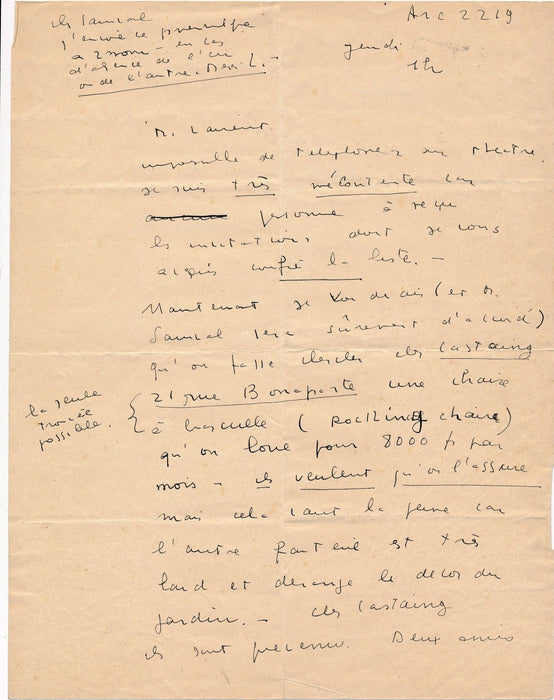 Mr Samsal
j'envoie ce pneu
à 2 noms - en cas
d'absence de l'un
ou de l'autre. Merci L. -
Arc 2219
jeudi
1h
M. Laurent
impossible de téléphoner au théâtre.
je suis très mécontente car
personne a reçu
les invitations dont je vous
confié la liste. -
Maintenant je voudrais (et M.
Samsal sera sûrement d'accord)
qu'on fasse chercher chez Castaing
21 rue Bonaparte une chaise
la seule
trouvée
possible.
à bascule (rocking chaire)
qu'on loue pour 8000 f par
mois - ils veulent qu'on l'assure
mais cela vaut la peine car
l'autre fauteuil est très
laid et dérange le décor du
jardin. - chez Castaing
ils sont prévenus. Deux amis